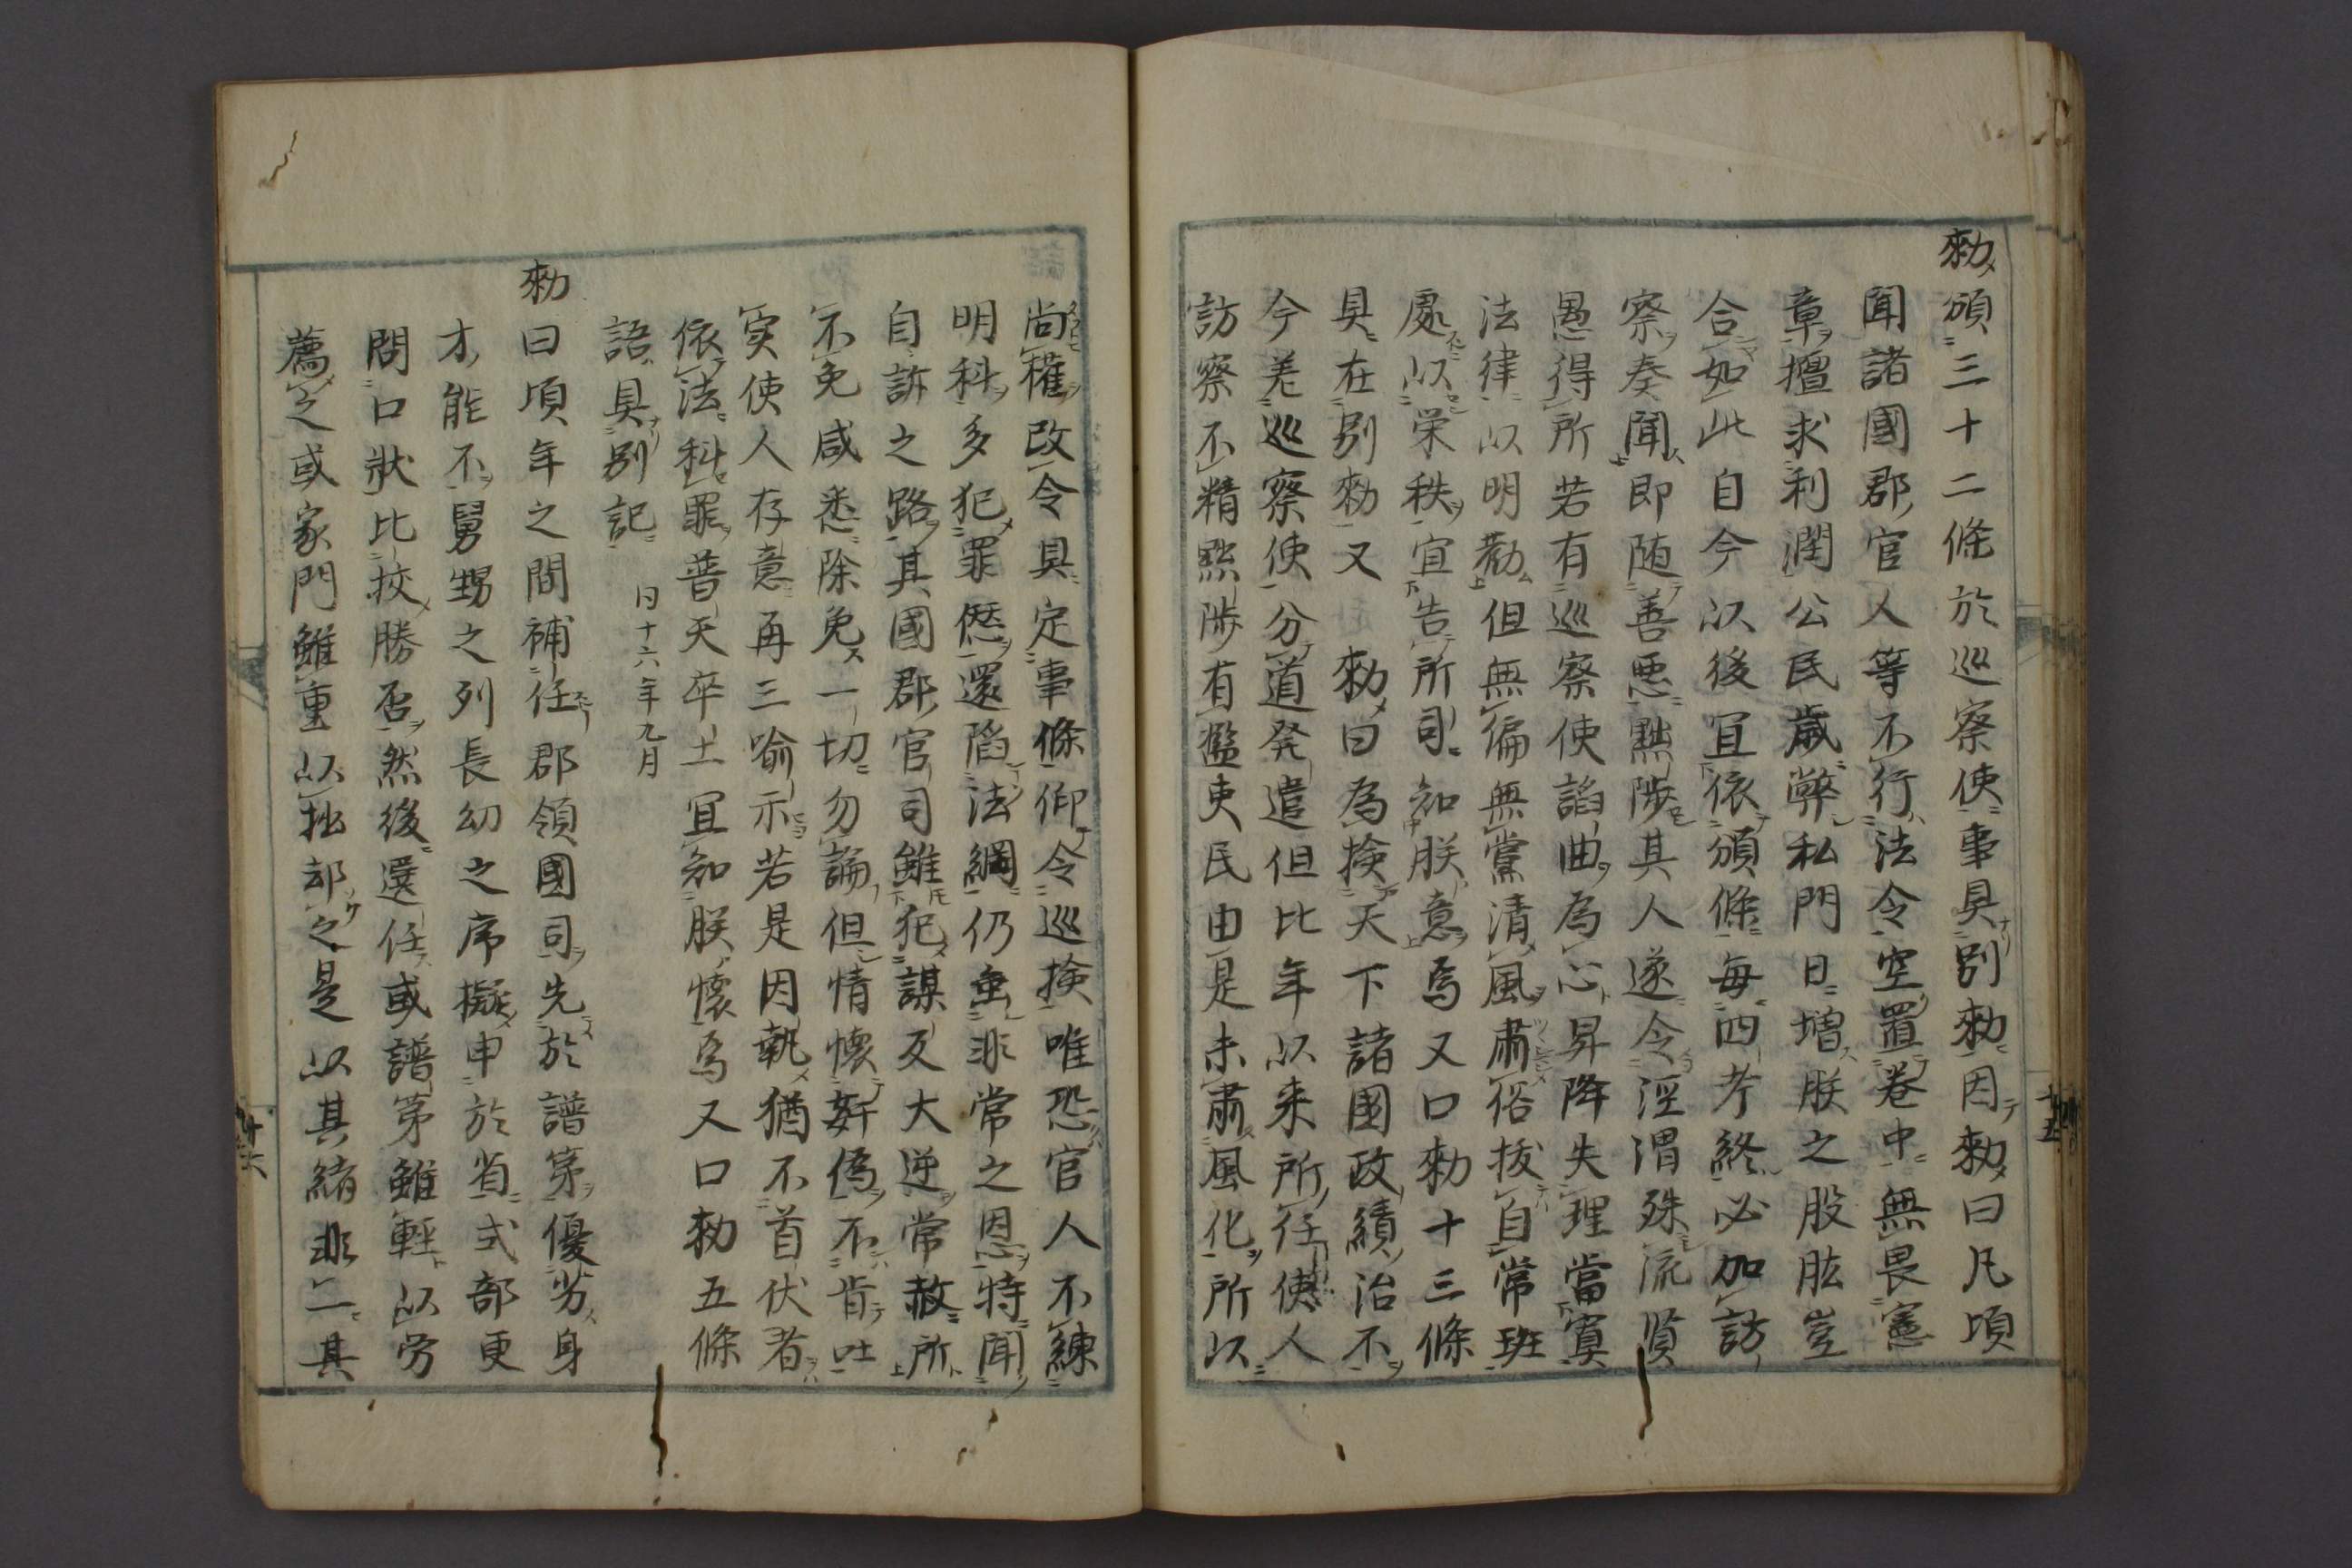 勅頒三十二條於巡察使事具別勅因勅曰凡頃
聞諸國郡官人等不行法令空置卷中無畏憲
章擅求利潤公民歳弊私門日増朕之股肱豈
合如此自今以後冝依頒條毎四考終必加訪
察奏聞即随善悪黜陟其人遂令涇渭殊流賢
愚得所若有巡察使諂曲為心昇降失理當寘
法律以明勸但無偏無黨清風肅俗抜自常班
處以栄秩宜告所司知朕意焉又口勅十三條
具在別勅又 勅曰為検天下諸國政績治不
今差巡察使分道発遣但比年以来所任使人
訪察不精黜陟有濫吏民由是未肅風化所以
尚權改令具定事條仰令巡検唯恐官人不練
明科多犯罪愆還陷法網仍垂非常之恩特聞
自訴之路其國郡官司雖犯謀反大逆常赦所
不免咸悉除免一切勿論但情懐姧偽不肯吐
実使人存意再三喻示若是因執猶不首伏者
依法科罪普天卒土冝知朕懐焉又口勅五條
語具別記 同十六年九月
勅曰頃年之間補任郡領國司先於譜第優劣身
才能不舅甥之列長幼之序擬申於省式部更
問口状比挍勝否然後選任或譜第雖輕以労
薦之或家門雖重以拙却之是以其緒非一其
十五
十六